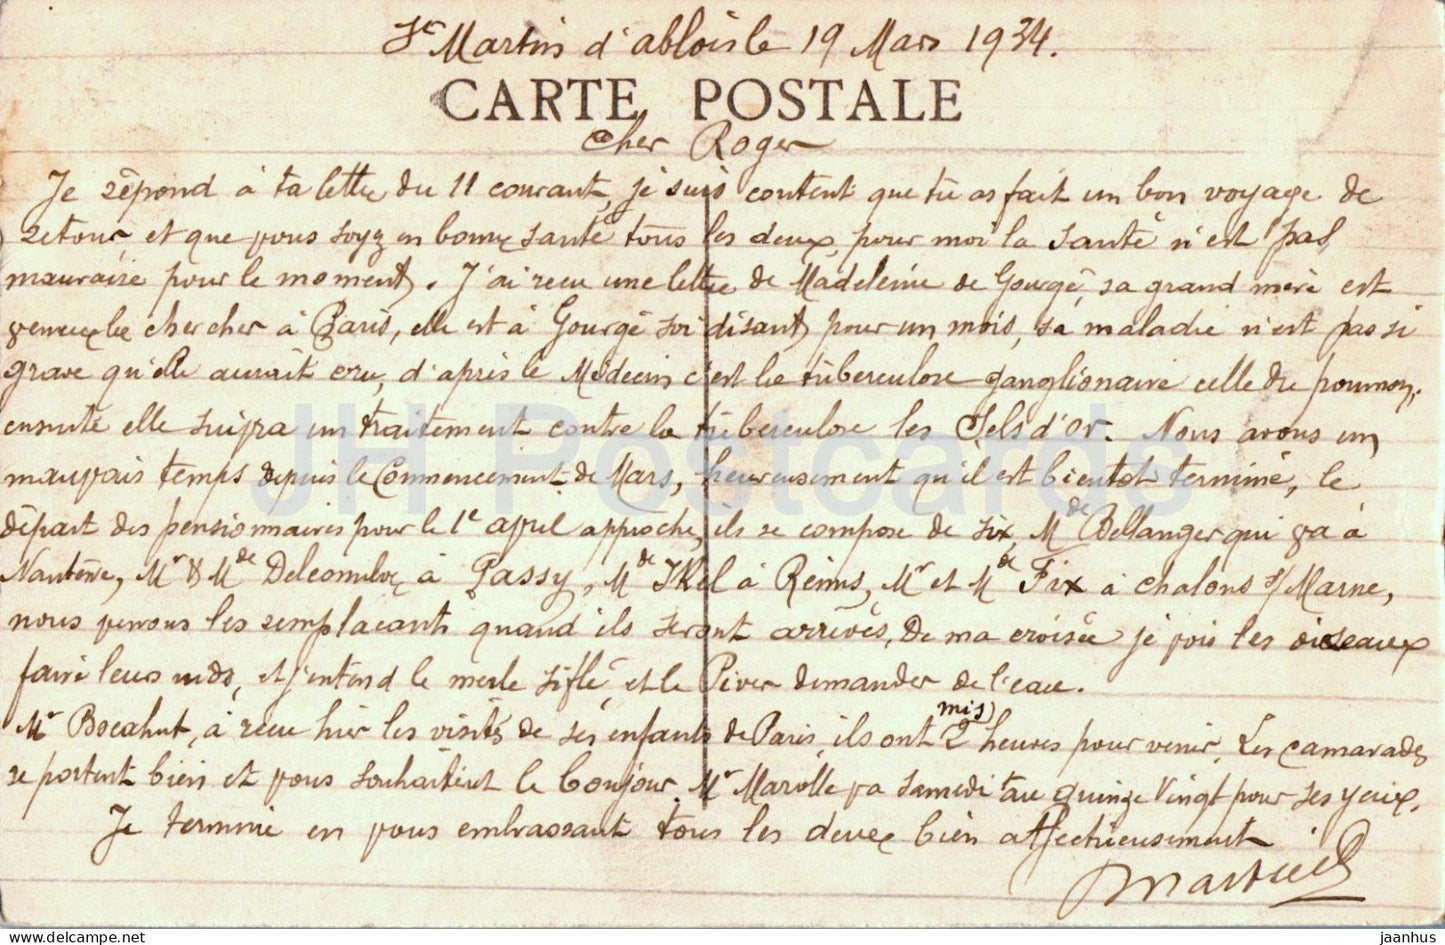 St Martin d'ablois le 19 Mars 1934.
CARTE POSTALE
Cher Roger
Je répond à ta lettre du 11 courant, je suis content que tu as fait un bon voyage de
retour et que vous soyez en bonne santé tous les deux, pour moi la santé n'est pas
mauvaise pour le moment. J'ai reçu une lettre de Madeleine de Gourgé, sa grand mère est
venue la chercher à Paris, elle est à Gourgé soi disant pour un mois, sa maladie n'est pas si
grave qu'elle aurait cru, d'après le Médecin c'est la tuberculose ganglionaire celle du poumon,
ensuite elle suivra un traitement contre la tuberculose les Sels d'or. Nous avons un
mauvais temps depuis le Commencement de Mars, heureusement qu'il est bientot terminé, le
départ des pensionnaires pour le 1e avril approche, ils se compose de six, Mde Bellanger qui va à
Nanterre, Mr & Mde à Passy, Mde à Reims, Mr et Mde Fix à Chalons s/Marne,
nous verrons les remplacants quand ils seront arrivés, De ma croisée je vois les oiseaux
faire leurs nids, et j'entend le merle siflé, et le Piver demander de l'eau.
Mr Bocahut, à reçu hier les visites de ses enfants de Paris, ils ont mis 2 heures pour venir. Les camarades
se portent bien et vous souhaitent le bonjour. Mr Marolle va samedi au quinze Vingt pour ses yeux.
Je termine en vous embrassant tous les deux bien affectueusement
JH Postcards
www.delcampe.net
jaanhus